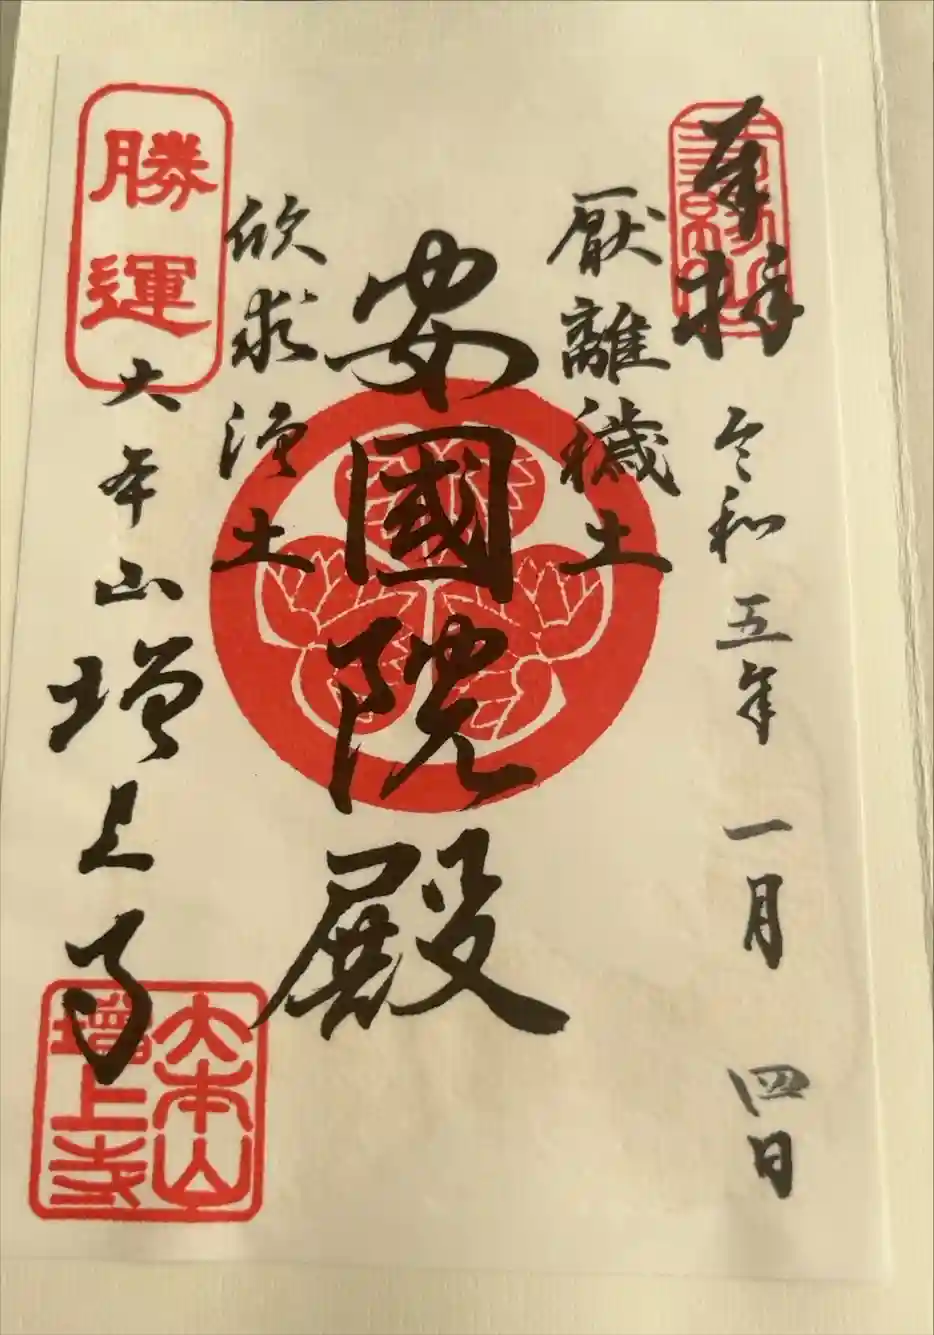 奉拝
令和五年一月四日
厭離穢土
安國院殿
欣求浄土
勝運
大本山増上寺
大本山
増上寺